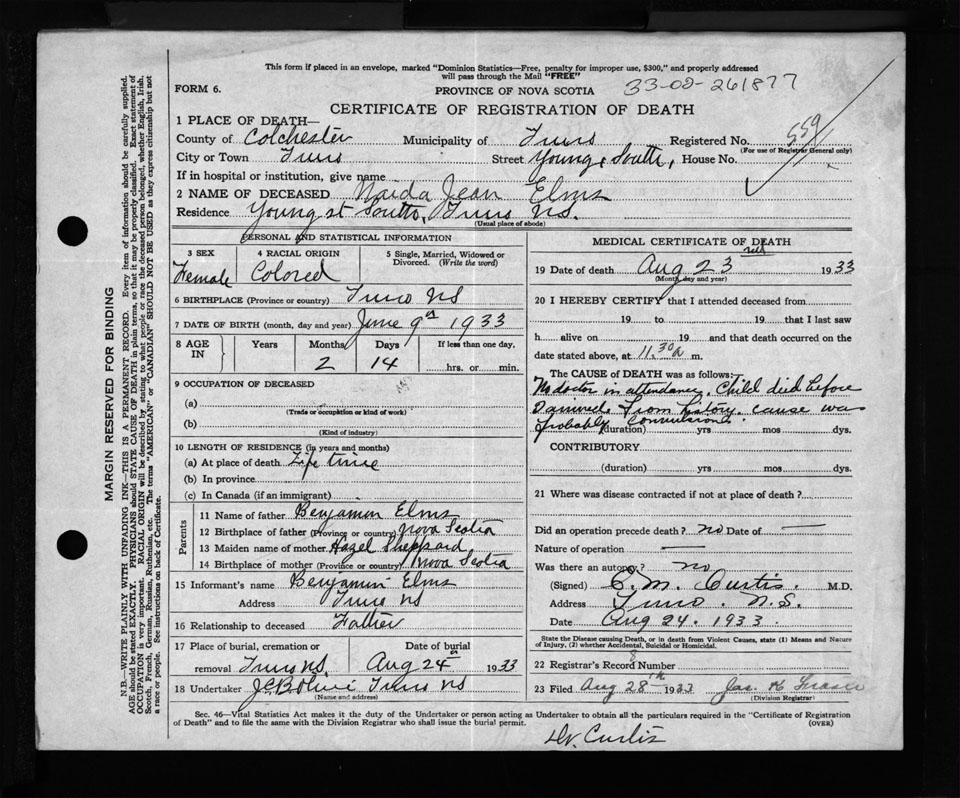 This form if placed in an envelope, marked "Dominion Statistics—Free, penalty for improper use, $300," and properly addressed
will pass through the Mail "FREE"
FORM 6.
PROVINCE OF NOVA SCOTIA
33-02-261877
CERTIFICATE OF REGISTRATION OF DEATH
1 PLACE OF DEATH—
County of Colchester Municipality of Truro Registered No. 559
(For use of Registrar General only)
City or Town Truro Street Young South, House No.
If in hospital or institution, give name
2 NAME OF DECEASED Naida Jean Elms
Residence Young st South, Truro NS.
(Usual place of abode)
PERSONAL AND STATISTICAL INFORMATION
3 SEX 4 RACIAL ORIGIN 5 Single, Married, Widowed or
Divorced. (Write the word)
Female Colored
6 BIRTHPLACE (Province or country) Truro NS
7 DATE OF BIRTH (month, day and year) June 9th 1933
8 AGE IN Years Months Days If less than one day,
2 14 hrs. or min.
9 OCCUPATION OF DECEASED
(a)
(Trade or occupation or kind of work)
(b)
(Kind of industry)
10 LENGTH OF RESIDENCE (in years and months)
(a) At place of death Life time
(b) In province
(c) In Canada (if an immigrant)
Parents
11 Name of father Benjamin Elms
12 Birthplace of father (Province or country) Nova Scotia
13 Maiden name of mother Hazel Sheppard
14 Birthplace of mother (Province or country) Nova Scotia
15 Informant's name Benjamin Elms
Address Truro NS
16 Relationship to deceased Father
17 Place of burial, cremation or Date of burial
removal Truro NS. Aug 24th 1933
18 Undertaker J.C.B. Olive Truro NS
(Name and address)
MEDICAL CERTIFICATE OF DEATH
19 Date of death Aug 23 1933
(Month, day and year)
20 I HEREBY CERTIFY that I attended deceased from
19 to 19 that I last saw
h alive on 19 and that death occurred on the
date stated above, at 11.30a m.
The CAUSE of DEATH was as follows:
No doctor in attendance. Child died before
I arrived. From history. cause was
probably convulsions.
(duration) yrs mos dys.
CONTRIBUTORY
(duration) yrs mos dys.
21 Where was disease contracted if not at place of death?
Did an operation precede death? no Date of —
Nature of operation —
Was there an autopsy? no
(Signed) C. M. Curtis. M.D.
Address Truro. N.S.
Date Aug 24. 1933
State the Disease causing Death, or in death from Violent Causes, state (1) Means and Nature
of Injury, (2) whether Accidental, Suicidal or Homicidal.
22 Registrar's Record Number 8
23 Filed Aug 28th 1933 Jas. K. Fraser
(Division Registrar)
Sec. 46—Vital Statistics Act makes it the duty of the Undertaker or person acting as Undertaker to obtain all the particulars required in the "Certificate of Registration
of Death" and to file the same with the Division Registrar who shall issue the burial permit.
(OVER)
Dr. Curtis
MARGIN RESERVED FOR BINDING
N.B.—WRITE PLAINLY WITH UNFADING INK—THIS IS A PERMANENT RECORD. Every item of information should be carefully supplied.
AGE should be stated EXACTLY. PHYSICIANS should STATE CAUSE OF DEATH in plain terms, so that it may be properly classified. Exact statement of
OCCUPATION is very important. RACIAL ORIGIN will be described by stating to what people or race the deceased person belonged, whether English, Irish,
Scotch, French, German, Russian, Ruthenian, etc. The terms "AMERICAN" or "CANADIAN" SHOULD NOT BE USED as they express citizenship but not
a race or people. See instructions on back of Certificate.